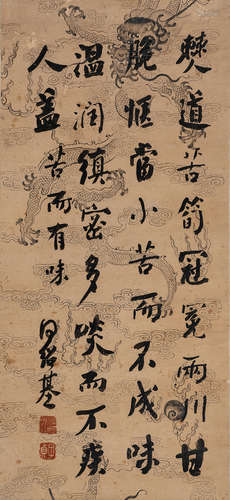 僰道苦筍冠冕兩川甘
脆愜當小苦而不成味
溫潤縝密多啖而不疾
人蓋苦而有味
何紹基